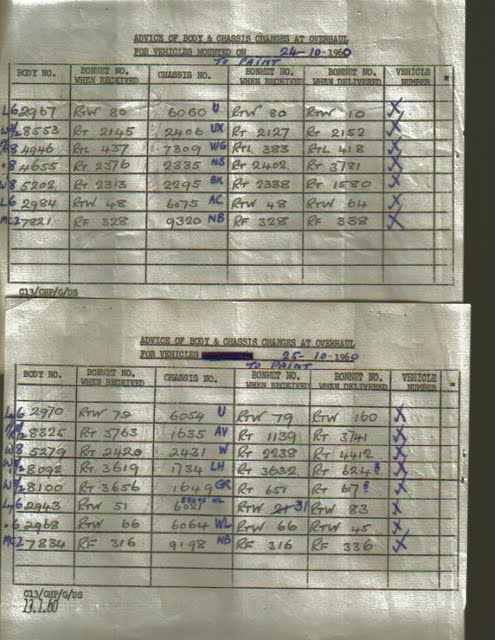 ADVICE OF BODY & CHASSIS CHANGES AT OVERHAUL
FOR VEHICLES MOUNTED ON 24-10-1960
TO PAINT
BODY NO. BONNET NO. WHEN RECEIVED CHASSIS NO. BONNET NO. WHEN RECEIVED BONNET NO. WHEN DELIVERED VEHICLE NUMBER
L6 2967 RTW 80 6060 U RTW 80 RTW 10 X
8553 RT 2145 2406 UX RT 2127 RT 2152 X
8 4946 RTL 437 7309 WG RTL 383 RTL 418 X
8 4655 RT 2376 2335 NS RT 2402 RT 3781 X
W8 5202 RT 2313 2295 BK RT 2388 RT 1580 X
L6 2984 RTW 48 6075 AC RTW 48 RTW 64 X
MC2 7821 RF 328 9320 NB RF 328 RF 338 X
C13/CHP/G/DS
ADVICE OF BODY & CHASSIS CHANGES AT OVERHAUL
FOR VEHICLES 25-10-1960
TO PAINT
BODY NO. BONNET NO. WHEN RECEIVED CHASSIS NO. BONNET NO. WHEN RECEIVED BONNET NO. WHEN DELIVERED VEHICLE NUMBER
L6 2970 RTW 79 6054 U RTW 79 RTW 160 X
8325 RT 3763 1635 AV RT 1139 RT 3141 X
W8 5279 RT 2420 2431 W RT 2238 RT 4412 X
8098 RT 3619 1734 LH RT 3632 RT 624 X
8100 RT 3656 1649 GR RT 651 RT 617 X
L6 2943 RTW 51 RTW 31 RTW 83 X
6 2968 RTW 66 6064 WL RTW 66 RTW 45 X
MC2 7834 RF 316 9198 NB RF 316 RF 336 X
C13/CHP/G/DS
13.1.60